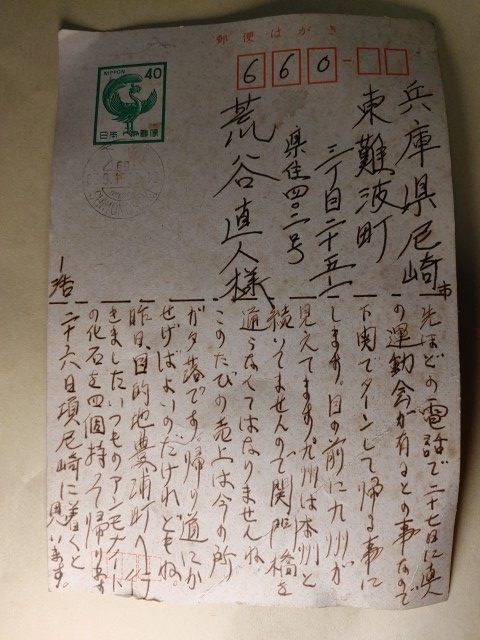 郵便はがき
660
NIPPON 40
日本郵便
兵庫県尼崎市
東難波町
三丁目二十五ー
県住四〇二号
荒谷直人様
浩
先ほどの電話で二十七日に真
の運動会が有るとの事なので
下関でターンして帰る事に
します。目の前に九州が
見えてます。九州は本州と
続いてませんので関門橋を
通らなくてはなりませんね
このたびの売上は今の所
がタ落です。帰り道にか
せげばよいのだけれどもね。
昨日、目的地豊浦町へ行
きました。いつものアンモナイト
の化石を四個持って帰ります
二十六日頃尼崎に着くと
思います。